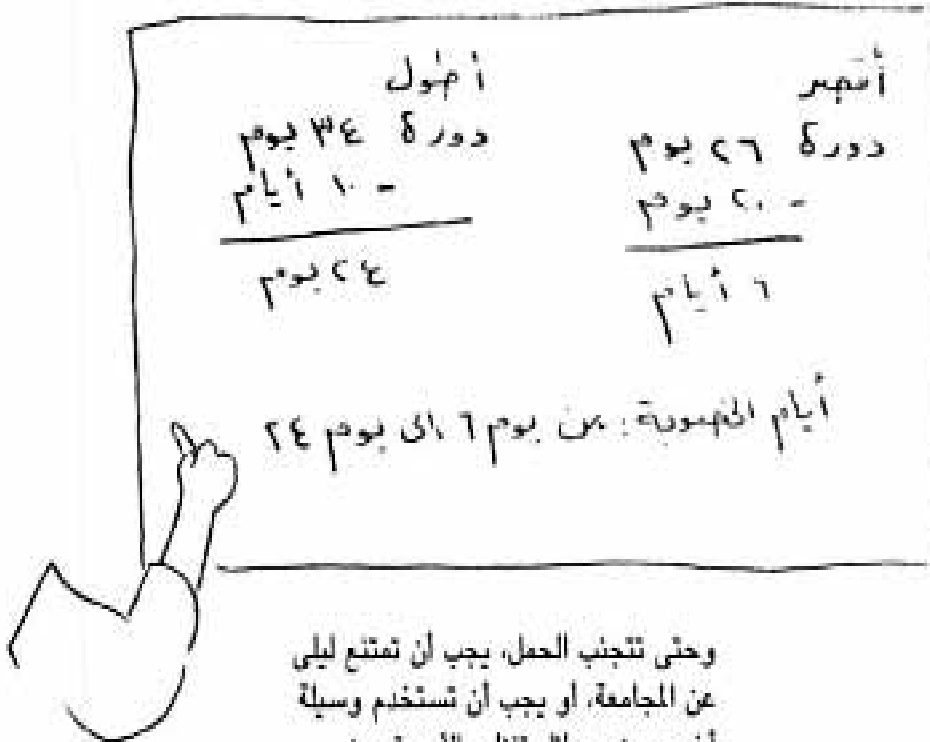 أقصر
دورة ٢٦ يوم
- ٢٠ يوم
٦ أيام
أطول
دورة ٣٤ يوم
- ١٠ أيام
٢٤ يوم
أيام الخصوبة: من يوم ٦ الى يوم ٢٤
وحتى تتجنب الحمل، يجب أن تمتنع ليلى
عن المجامعة، أو يجب أن تستخدم وسيلة